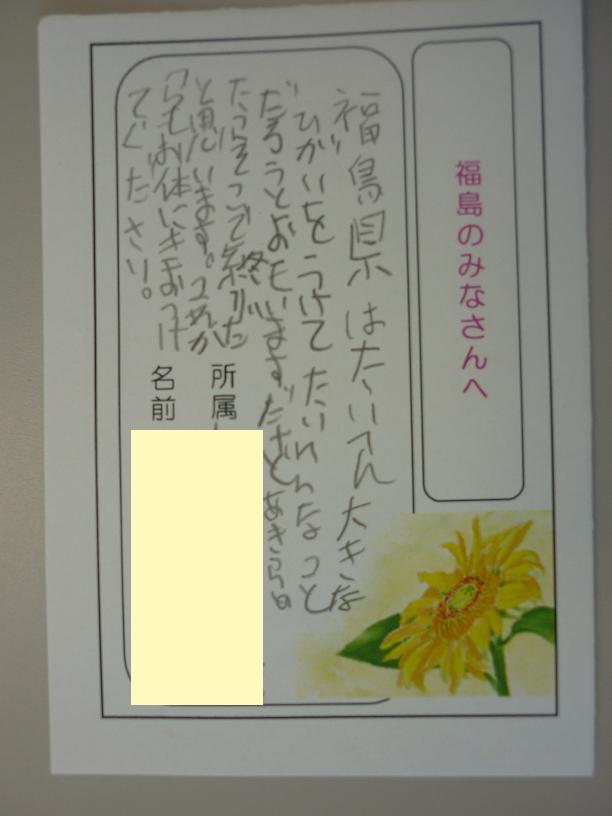 福島のみなさんへ
福島県はたいへん大きな
ひがいをうけてたいへんなこと
だろうとおもいます。だけどあきらめ
たらそこで終りだ
と思います。これか
らもお体にきおつけ
てください。
所属
名前